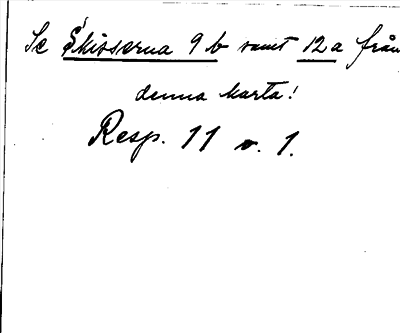 Se Skisserna 9 b samt 12 a från
denna karta!
Resp. 11 v. 1.